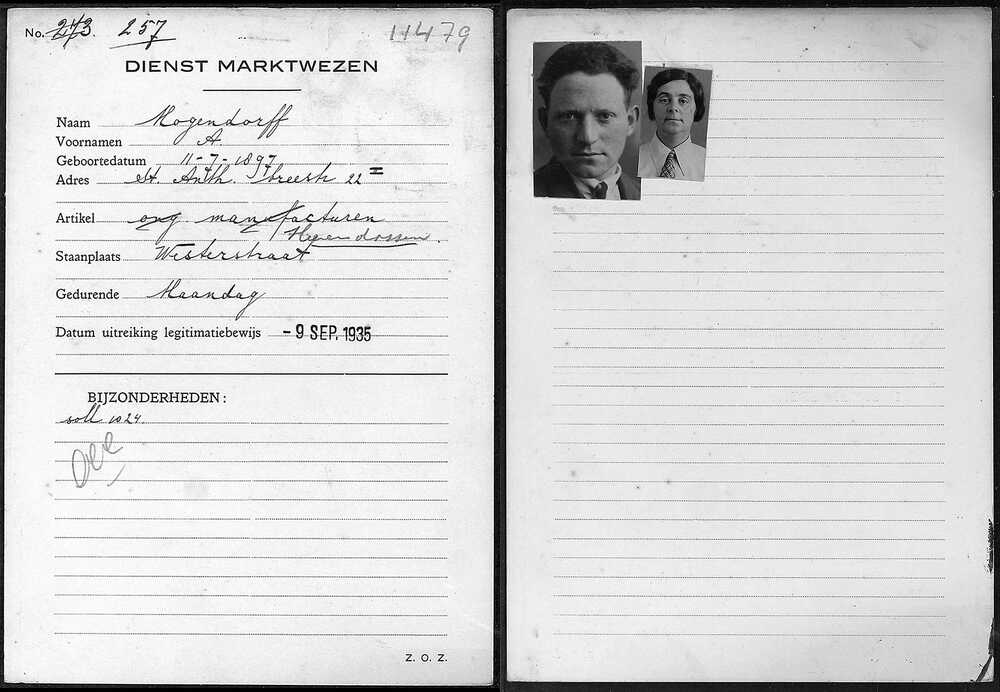 No. 243 257 11479
DIENST MARKTWEZEN
Naam Mogendorff
Voornamen A.
Geboortedatum 11-7-1897
Adres St. Anth. Breestr. 22 II
Artikel ong. manufacturen
Heerendassen.
Staanplaats Westerstraat
Gedurende Maandag
Datum uitreiking legitimatiebewijs - 9 SEP. 1935
BIJZONDERHEDEN:
soll 1024.
Z. O. Z.